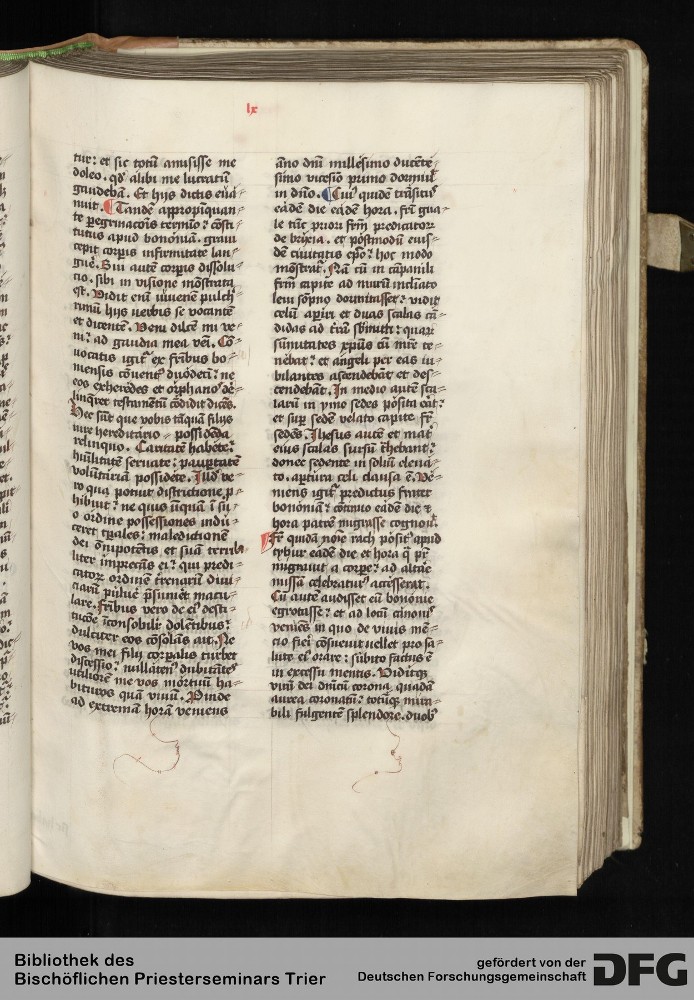 lx
tur: et sic totū amisisse me
doleo. qd' alibi me lucratū
gaudebā. Et hijs dictis euā-
nuit. Tandē appropīquan-
te pegrinacōis termīo: cōsti-
tutus apud bononiā. graui
cepit corpis infirmitate lan-
gue'. Cui autē corpis dissolu-
tio. sibi in visione mōstrata
est. Vidit enī iuuenē pulch'-
rimū hijs uerbis se vocantē
et dicentē. Veni dilcē mi ve-
ni: ad gaudia mea veni. Cō-
uocatis igit' ex fr̄ibus bo-
niensis cōuent' duōdeci: ne
eos exheredes et orphano' de-
linqret testamentū cōdidit dicēs.
Hec sūt que vobis tāquā filijs
iure hereditario possidēda
relinquo. Caritatē habete:
hūilitatē seruate: paupertatē
volūtariā possidete. Illud ve-
ro qua potuit districtione p-
hibuit: ne quis ūquā ī su-
o ordine possessiones indu-
ceret tpales: maledictionē
dei ōnipotētis et suā terribi-
liter imprecās ei: qui predi-
cator' ordinē trenarū diui-
ciarū puluē psūmet macu-
lare. Fribus vero de ei' desti-
tucōe īconsobilr dolētibus:
dulciter eos cōsolās ait. Ne
vos mei filij corpalis turbet
discessio: nullaten' dubitātes
utiliorē me vos mortuū ha-
bituros quā viuū. Deinde
ad extremā horā veniens
āno dnī millesimo ducēte-
simo vicesīo primo dormiū
in dnō. Cui' quidē trāsitus
eadē die eadē hora. fri gua-
le tūc priori frm̄ predicator'
de brixia. et postmodū eius-
dē ciuitatis epo: hoc modo
mōstrat'. Nā cū in cāpanili
frm̄ capite ad murū inclīato
leui sopno dormitasset: vidit
celū apīri et duas scalas cā-
didas ad trā sbmitti: quar'
sūmitates xpūs cū mr̄e te-
nebāt: et angeli per eas iu-
bilantes ascendebāt et des-
cendebāt. In medio autē sca-
larū in ymo sedes posita erat:
et sup sedē velato capite fr̄
sedēs. Ihesus autē et mat'
eius scalas sursū trhebant:
donec sedente in soliū eleua-
to. aptura celi clausa ē. Ve-
niens igit' predictus frater
bononiā: cōtinuo eadē die et
hora patrē migrasse cognouit.
Fr̄ quidā noīe rach posit' apud
tybur eadē die et hora q pr̄
migrauit a corpe: ad altāe
missā celebratur' accesserat.
Cū autē audisset eū bononie
egrotasse: et ad locū canonis
veniēs in quo de viuis mē-
tio fieri cōsueuit vellet pro sa-
lute ei' orare: subito factus ē
in excessu mentis. Viditqz
virū dei dnicū corona quadā
aurea coronatū: totūqz mira-
bili fulgentē splendore. duob'
Bibliothek des
Bischöflichen Priesterseminars Trier
gefördert von der
Deutschen Forschungsgemeinschaft
DFG